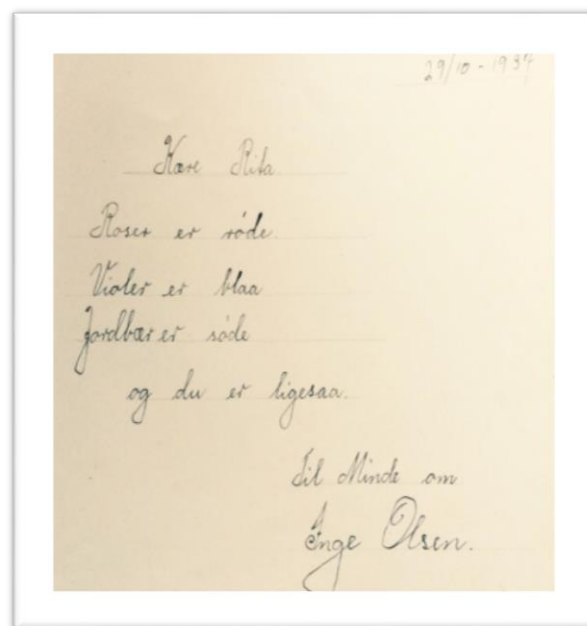 29/10 - 1937
Kære Rita.
Roser er røde.
Violer er blaa
Jordbær er søde
og du er ligesaa.
Til Minde om
Inge Olsen.